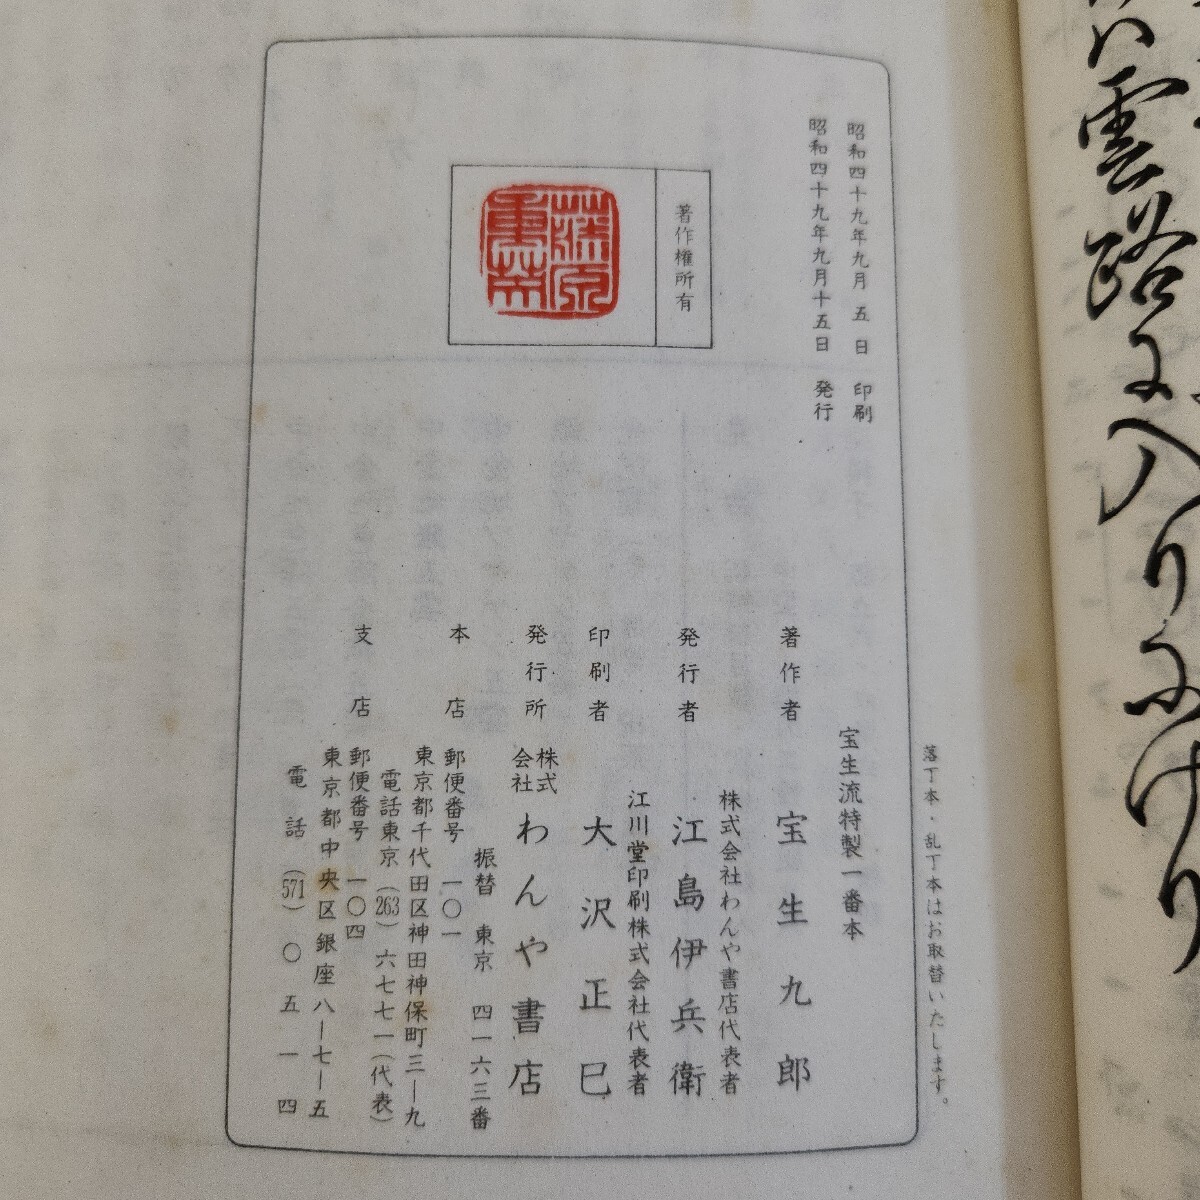 雲路に入りにけり
昭和四十九年九月 五 日 印刷
昭和四十九年九月十五日 発行
著作権所有
藤原
宝生流特製一番本
著作者 宝生九郎
株式会社わんや書店代表者
発行者 江島伊兵衛
江川堂印刷株式会社代表者
印刷者 大沢正巳
発行所 株式会社 わんや書店
振替 東京 四一六三番
本店 郵便番号 一〇一
東京都千代田区神田神保町三ー九
電話東京(263)六七七一(代表)
支店 郵便番号 一〇四
東京都中央区銀座八ー七ー五
電話(571)〇五一四
落丁本・乱丁本はお取替いたします。